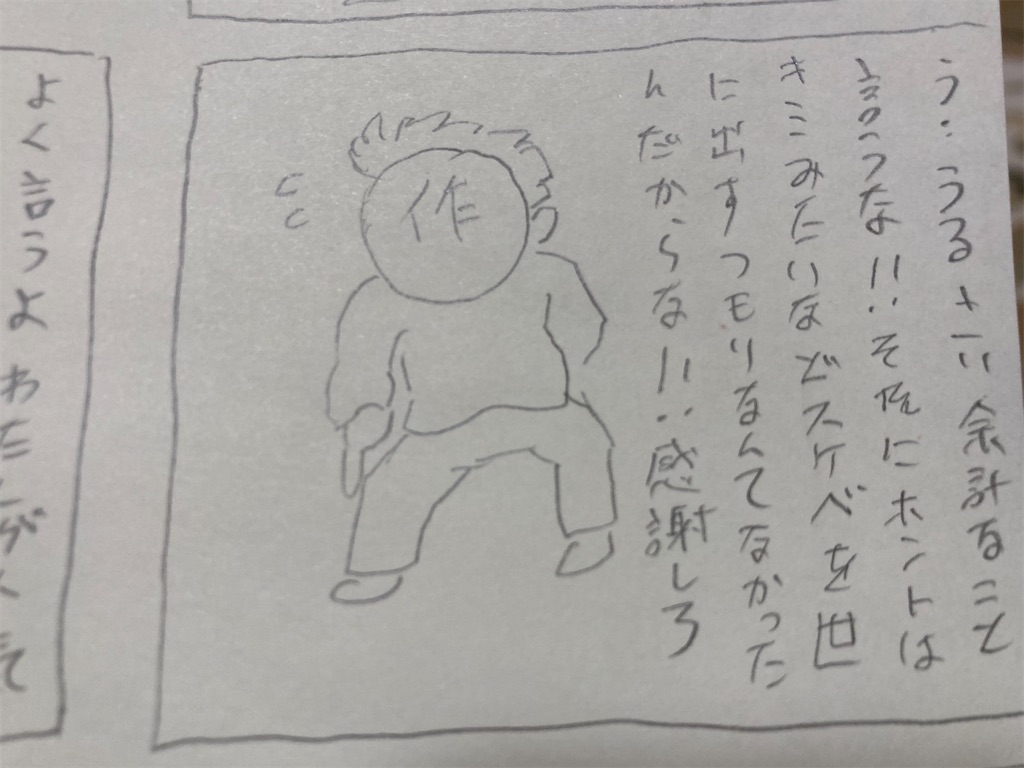 う‥うるさい余計なこと
言うな!!‥それにホントは
キミみたいなどスケベを世
に出すつもりなんてなかった
んだからな!!‥感謝しろ
作
よく言うよ わた